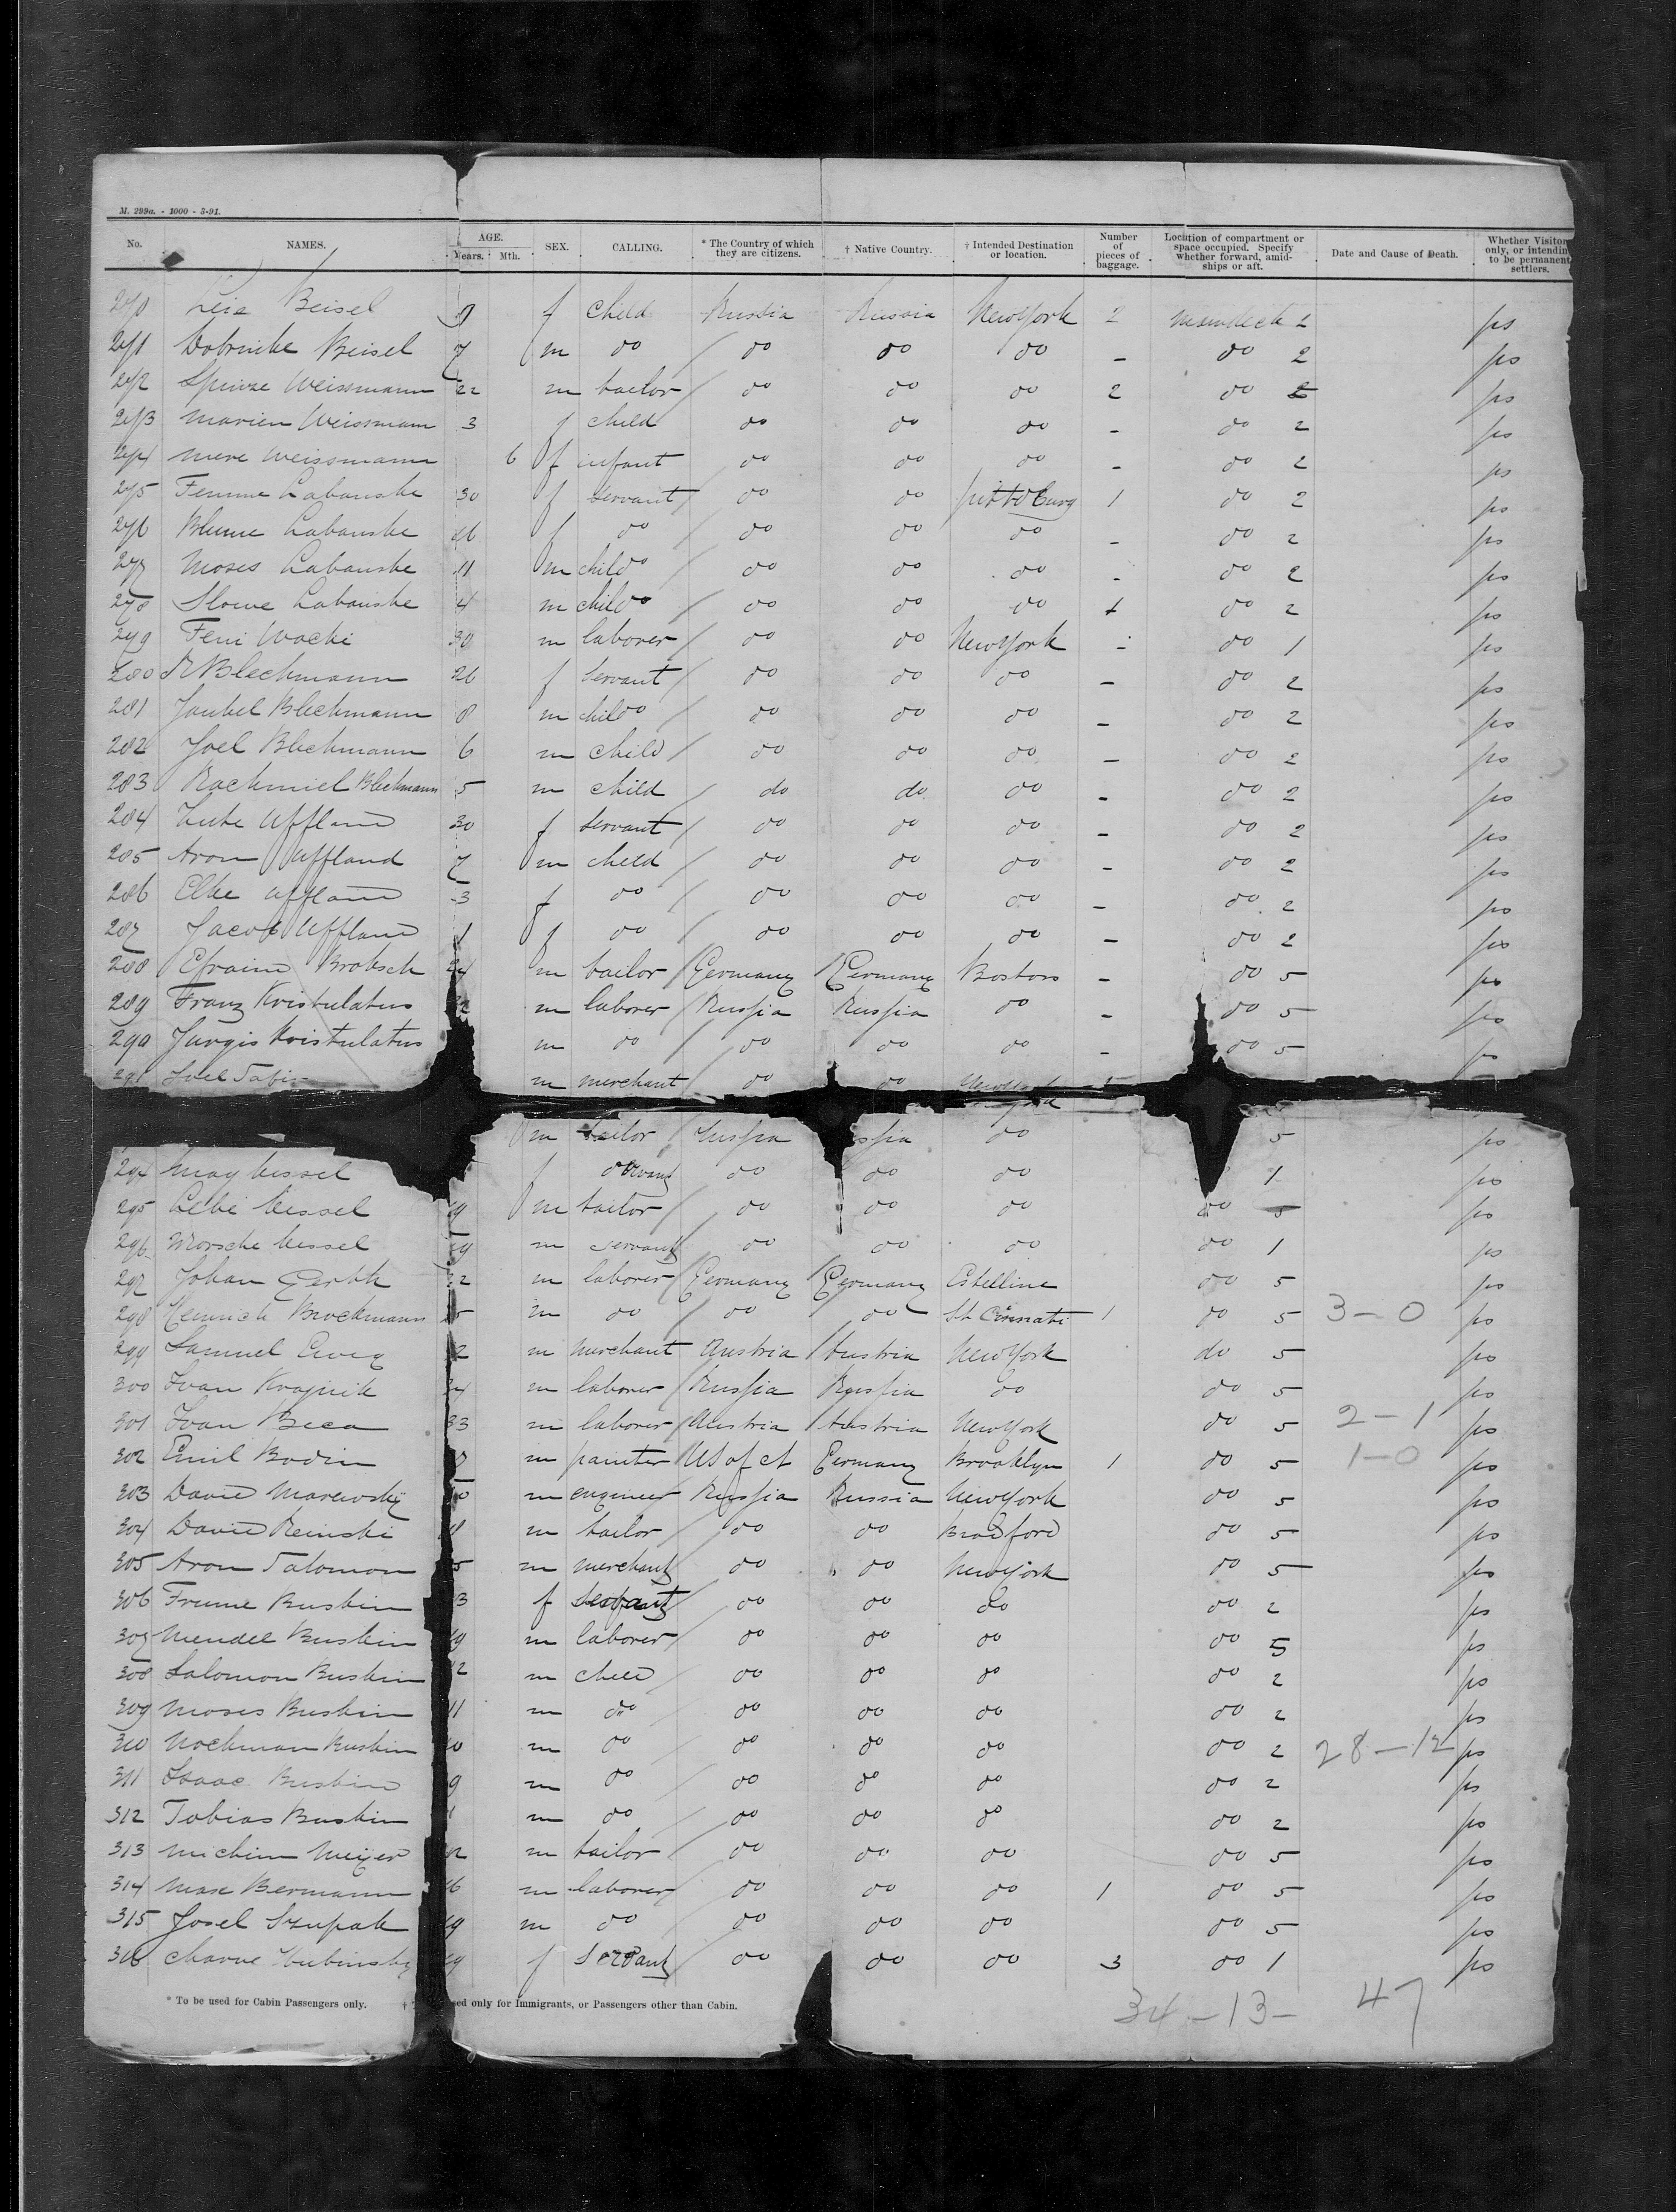 M. 299a. - 1000 - 3-91.
No. NAMES. AGE. Years. Mth. SEX. CALLING. * The Country of which they are citizens. † Native Country. † Intended Destination or location. Number of pieces of baggage. Location of compartment or space occupied. Specify whether forward, amidships or aft. Date and Cause of Death. Whether Visitor only, or intendin to be permanent settlers.
270 Leie Beisel f child Russia Russia New York 2 maindeck 2 ps
271 Beisel 7 m do do do do - do 2 ps
272 Weissmann 22 m tailor do do do 2 do 2 ps
273 Marien Weissmann 3 f child do do do - do 2 ps
274 Mere Weissmann 6 f infant do do do - do 2 ps
275 Labanske 30 f servant do do pittsburg 1 do 2 ps
276 Blume Labanske 16 f do do do do - do 2 ps
277 Moses Labanske 11 m child do do do - do 2 ps
278 Slowe Labanske 4 m child do do do do 2 ps
279 Feni Wacki 30 m laborer do do New York - do 1 ps
280 Blechmann 26 f servant do do do - do 2 ps
281 Jankel Blechmann 8 m child do do do - do 2 ps
282 Joel Blechmann 6 m child do do do - do 2 ps
283 Rachmiel Blechmann 5 m child do do do - do 2 ps
284 Uffland 30 f servant do do do - do 2 ps
285 Aron Uffland 7 m child do do do - do 2 ps
286 Elke Uffland 3 f do do do do - do 2 ps
287 Jacob Uffland 1 f do do do do - do 2 ps
288 Efraim Brobsch 24 m tailor Germany Germany Boston - do 5 ps
289 Franz Kristulatus m laborer Russia Russia do - do 5 ps
290 Jurgis Kristulatus m do do do do - do 5 ps
291 m merchant do do New York
m tailor Russia do 5 ps
294 May f servant do do do 1 ps
295 Leibe m tailor do do do do 5 ps
296 Morsche m servant do do do do 1 ps
297 Johan Gerth m laborer Germany Germany Estelline do 5 ps
298 Heinrich Brockmann m do do do St Cinnati 1 do 5 3-0 ps
299 Samuel m merchant Austria Austria New York do 5 ps
300 Ivan Krajnik m laborer Russia Russia do do 5 ps
301 Ivan Beca 33 m laborer Austria Austria New York do 5 2-1 ps
302 Emil Bodin m painter US of A Germany Brooklyn 1 do 5 1-0 ps
303 David Marewsky m engineer Russia Russia New York do 5 ps
304 David Reinski m tailor do do Bradford do 5 ps
305 Aron Salomon m merchant do do New York do 5 ps
306 Frume Ruskin f servant do do do do 2 ps
307 Mendel Ruskin m laborer do do do do 5 ps
308 Salomon Ruskin m child do do do do 2 ps
309 Moses Ruskin 11 m do do do do do 2 ps
310 Nochman Ruskin m do do do do do 2 28-12 ps
311 Isaac Ruskin 9 m do do do do do 2 ps
312 Tobias Ruskin m do do do do do 2 ps
313 Meijer m tailor do do do do 5 ps
314 Max Bermann m laborer do do do 1 do 5 ps
315 Josel Szupak m do do do do do 5 ps
316 Charne f servant do do do 3 do 1 ps
* To be used for Cabin Passengers only. † sed only for Immigrants, or Passengers other than Cabin.
34-13- 47